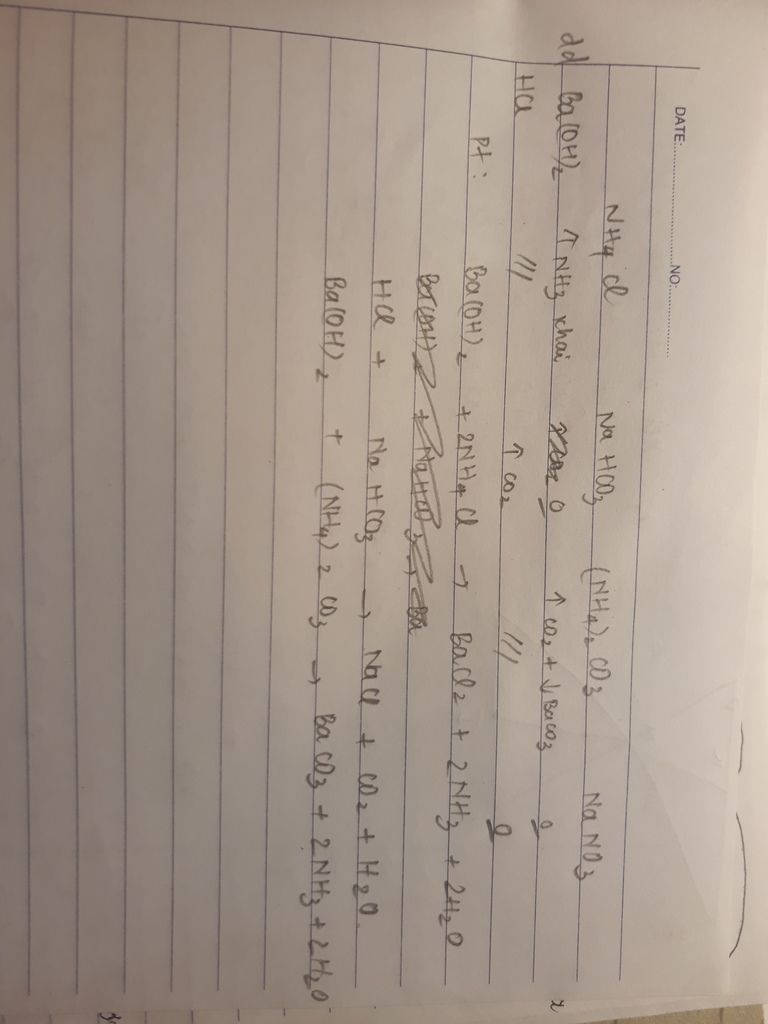 DATE:............... NO:...............
NH4Cl NaHCO3 (NH4)2CO3 NaNO3
dd Ba(OH)2 ↑NH3 khai 0 ↑CO2+↓BaCO3 0
HCl /// ↑CO2 /// 0
Pt: Ba(OH)2 + 2NH4Cl → BaCl2 + 2NH3 + 2H2O
Ba(OH)2 + NaHCO3 → Ba
HCl + NaHCO3 → NaCl + CO2 + H2O.
Ba(OH)2 + (NH4)2CO3 → BaCO3 + 2NH3 + 2H2O